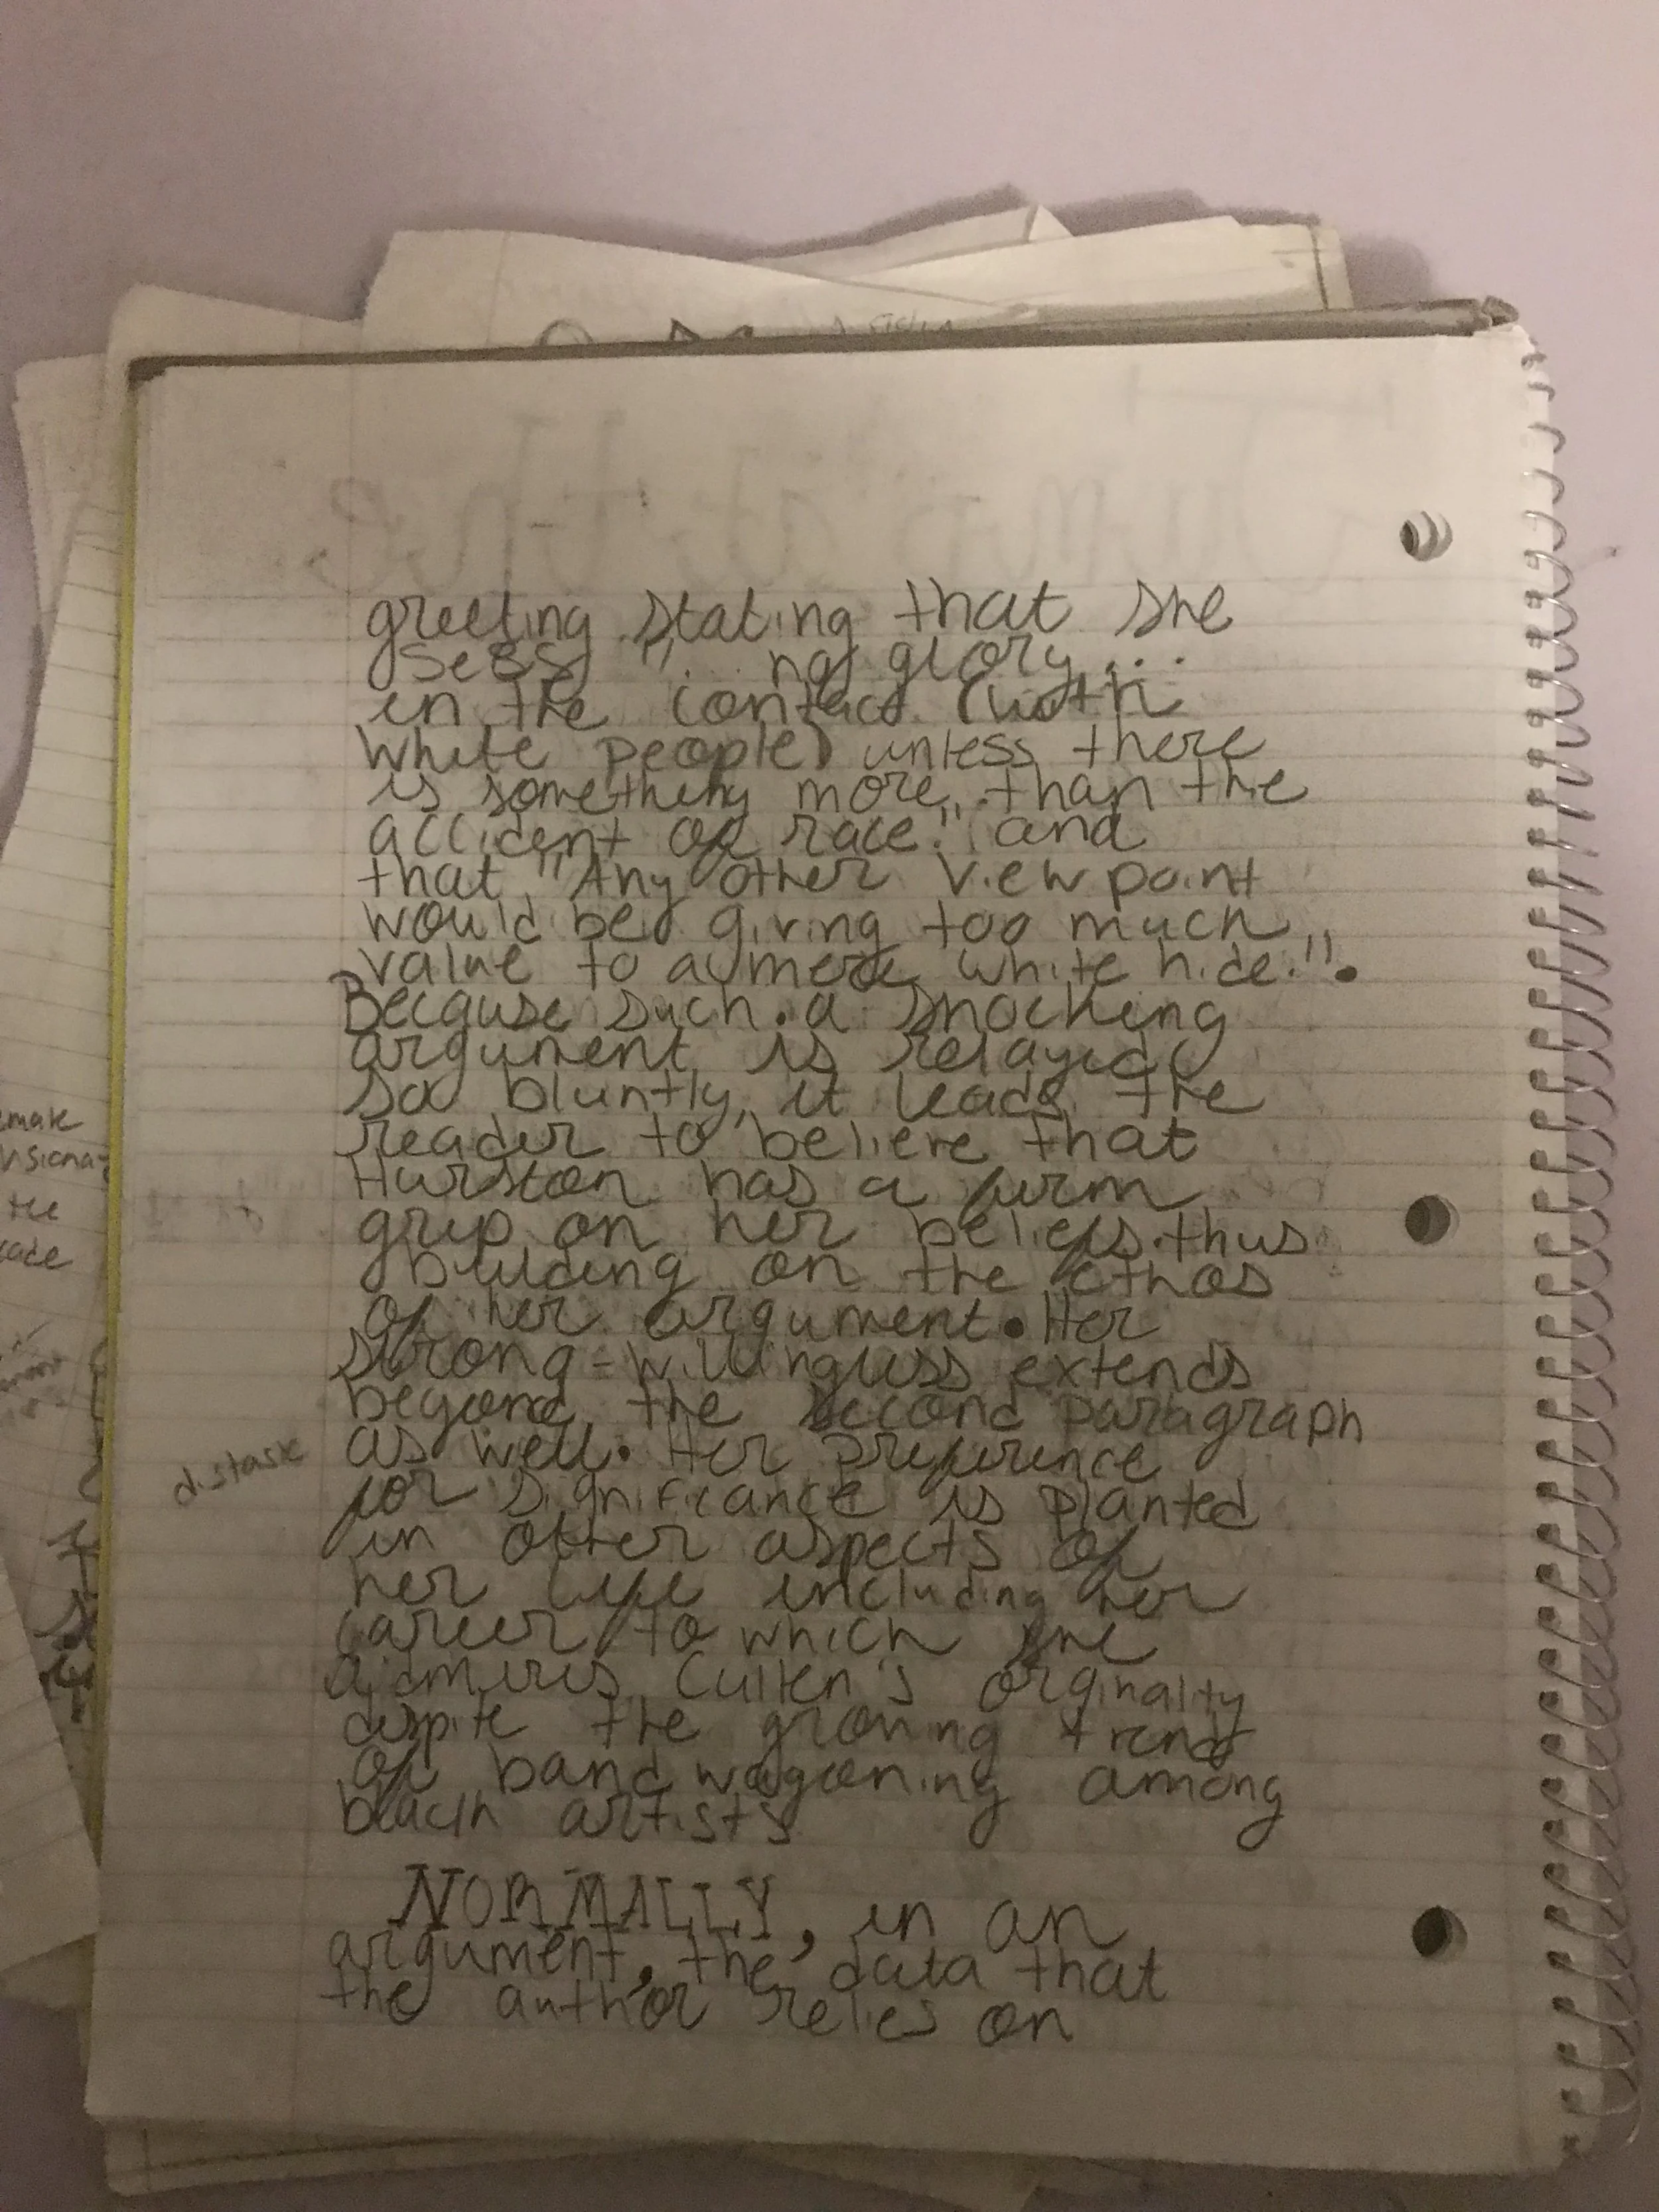 greeting stating that she
sees "... no glory...
in the contact (with
white people) unless there
is something more than the
accident of race." and
that "Any other view point
would be giving too much
value to a mere white hide.".
Because such a shocking
argument is relayed
so bluntly, it leads the
reader to believe that
Hurston has a firm
grip on her beliefs thus
building on the ethos
of her argument. Her
strong-willingness extends
beyond the second paragraph
as well. Her preference
for significance is planted
in other aspects of
her life including her
career to which she
admires Cullen's orginality
despite the growing trend
of bandwagoning among
black artists
NORMALLY, in an
argument, the data that
the author relies on
distask
emale
the